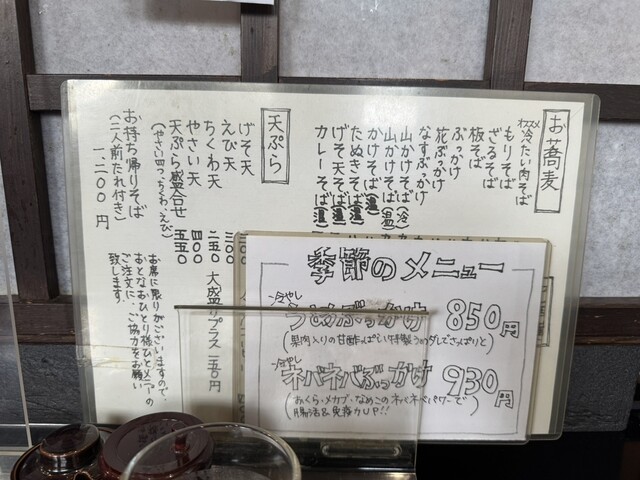 お蕎麦
オススメ 冷たい肉そば
もりそば
ざるそば
板そば
ぶっかけ
花ぶっかけ
なすぶっかけ
山かけそば(冷)
山かけそば(温)
かけそば 温
たぬきそば 温
げそ天そば 温
カレーそば 温
天ぷら
げそ天
えび天
ちくわ天 二五〇
やさい天 四〇〇
天ぷら盛合せ 五五〇
(やさい四つ、ちくわ、えび)
お持ち帰りそば
(二人前たれ付き)
一、二〇〇円
大盛りプラス 二五〇円
お席に限りがございますので、
おとなおひとり様ひとメニューの
ご注文に、ご協力をお願い
致します。
季節のメニュー
冷やし
うめぶっかけ 850円
冷やし
ネバネバぶっかけ 930円
(おくら・メカブ・なめこのネバネバパワーで
腸活&免疫力UP!!)